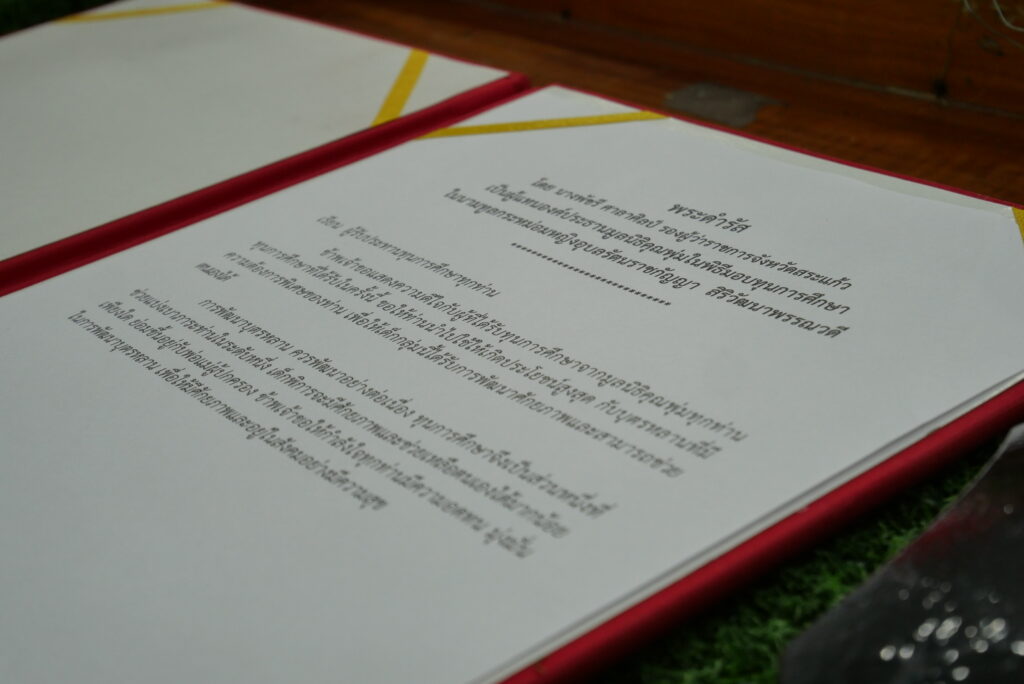 พระดำรัส
โดย นางพัชรี ศาลาศิลป์ รองผู้ว่าราชการจังหวัดสระแก้ว
เป็นผู้แทนองค์ประธานมูลนิธิคุณพุ่มในพิธีมอบทุนการศึกษา
ในนามทูลกระหม่อมหญิงอุบลรัตนราชกัญญา สิริวัฒนาพรรณวดี
เรียน ผู้รับประทานทุนการศึกษาทุกท่าน
ข้าพเจ้าขอแสดงความดีใจกับผู้ที่ได้รับทุนการศึกษาจากมูลนิธิคุณพุ่มทุกท่าน
ทุนการศึกษาที่ได้รับในครั้งนี้ ขอให้ท่านนำไปใช้ให้เกิดประโยชน์สูงสุด กับบุตรหลานที่มี
ความต้องการพิเศษของท่าน เพื่อให้เด็กกลุ่มนี้ได้รับการพัฒนาศักยภาพและสามารถช่วย
ตนเองได้
การพัฒนาบุตรหลาน ควรพัฒนาอย่างต่อเนื่อง ทุนการศึกษาจึงเป็นส่วนหนึ่งที่
ช่วยแบ่งเบาภาระท่านในระดับหนึ่ง เด็กพิการจะมีศักยภาพและช่วยเหลือตนเองได้มากน้อย
เพียงใด ย่อมขึ้นอยู่กับพ่อแม่ผู้ปกครอง ข้าพเจ้าขอให้กำลังใจทุกท่านมีความอดทน มุ่งมั่น
ในการพัฒนาบุตรหลาน เพื่อให้มีศักยภาพและอยู่ในสังคมอย่างมีความสุข